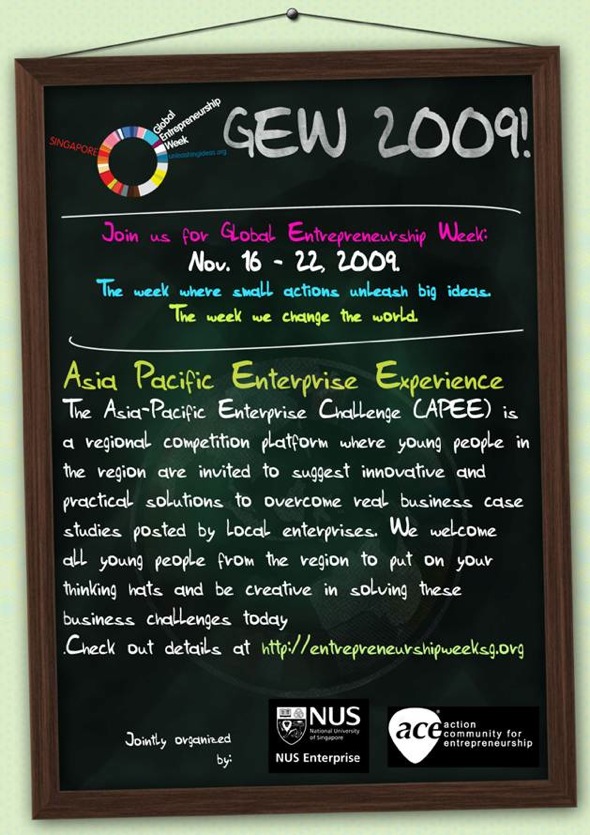 SINGAPORE
Global
Entrepreneurship
Week
unleashingideas.org
GEW 2009!
Join us for Global Entrepreneurship Week:
Nov. 16 - 22, 2009.
The week where small actions unleash big ideas.
The week we change the world.
Asia Pacific Enterprise Experience
The Asia-Pacific Enterprise Challenge (APEE) is
a regional competition platform where young people in
the region are invited to suggest innovative and
practical solutions to overcome real business case
studies posted by local enterprises. We welcome
all young people from the region to put on your
thinking hats and be creative in solving these
business challenges today
.Check out details at http://entrepreneurshipweeksg.org
Jointly organized
by:
NUS
National University
of Singapore
NUS Enterprise
ace
action
community for
entrepreneurship